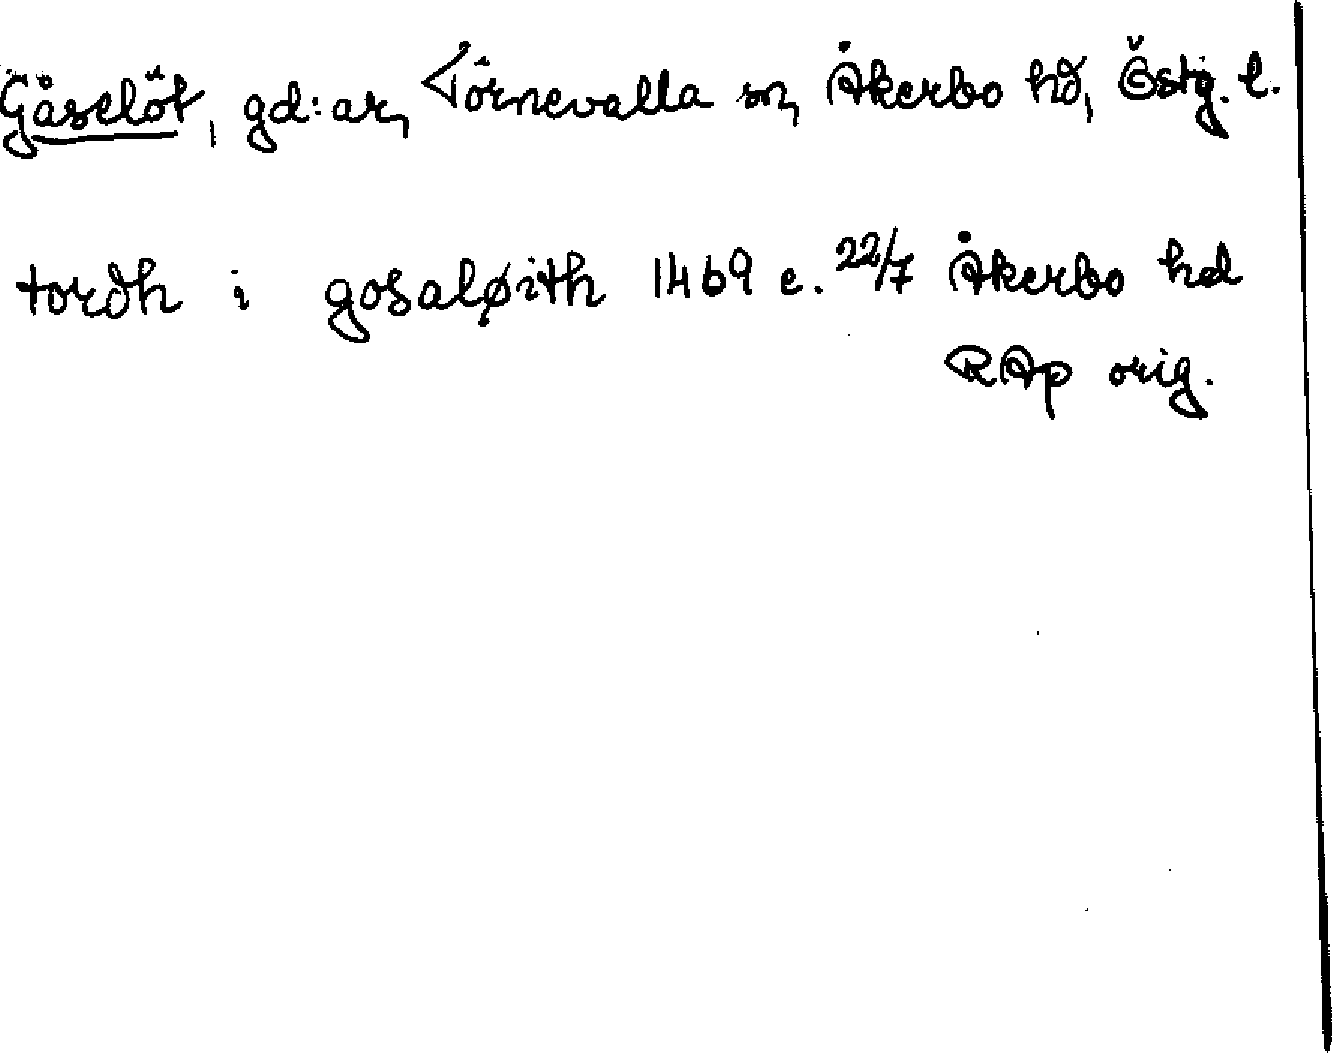 Gåselöt, gd:ar, Törnevalla sn, Åkerbo hd, Östg. l.
tordh i gosaløith 1469 e. 22/7 Åkerbo hd
RAp orig.